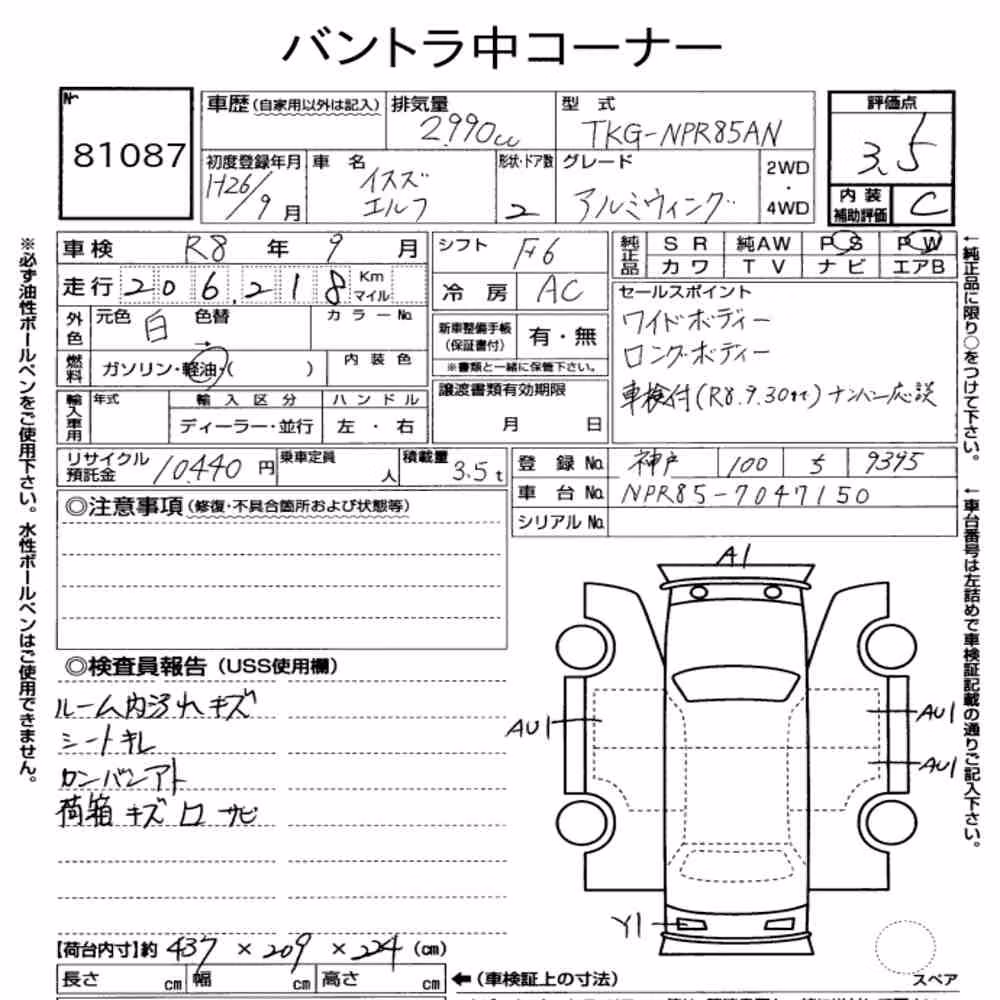 バントラ中コーナー
№ 81087
車歴(自家用以外は記入)
排気量 2990cc
型式 TKG-NPR85AN
評価点 3.5
内装補助評価 C
初度登録年月 H26/9月
車名 イスズ エルフ
形状・ドア数 2
グレード アルミウィング
2WD・4WD
車検 R8年9月
走行 206,218 Km マイル
外色 元色 白 色替 →
カラーNo.
燃料 ガソリン・軽油・( )
内装色
輸入車用 年式
輸入区分 ディーラー・並行
ハンドル 左・右
シフト F6
冷房 AC
新車整備手帳(保証書付) 有・無
※書類と一緒に保管下さい。
譲渡書類有効期限 月 日
純正品 SR 純AW PS PW
カワ TV ナビ エアB
セールスポイント
ワイドボディー
ロングボディー
車検付(R8.9.30まで)ナンバー応談
リサイクル預託金 10440円
乗車定員 人
積載量 3.5t
登録No. 神戸 100 う 9395
車台No. NPR85-7047150
シリアルNo.
◎注意事項(修復・不具合箇所および状態等)
◎検査員報告(USS使用欄)
ルーム内汚れキズ
シートキレ
カンバンアト
荷箱キズ凹サビ
A1
AU1
AU1
AU1
Y1
スペア
【荷台内寸】約 437×209×224(cm)
長さ cm 幅 cm 高さ cm
←(車検証上の寸法)
※必ず油性ボールペンをご使用下さい。水性ボールペンはご使用できません。
←純正品に限り○をつけて下さい。
←車台番号は左詰めで車検証記載の通りご記入下さい。